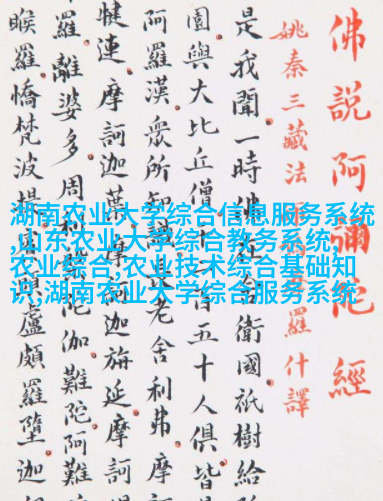 佛說阿彌陀經
姚秦三藏法羅什譯
是我聞一時佛在舍衛國祇樹給
園與大比丘僧百五十人俱皆
阿羅漢眾所知識長老舍利弗摩
犍連摩訶迦葉摩訶迦旃延摩訶
羅離婆多周利陀伽難陀阿難
睺羅憍梵波提頭盧頗羅墮迦
湖南农业大学综合信息服务系统
,山东农业大学综合教务系统,
农业综合,农业技术综合基础知
识,湖南农业大学综合服务系统